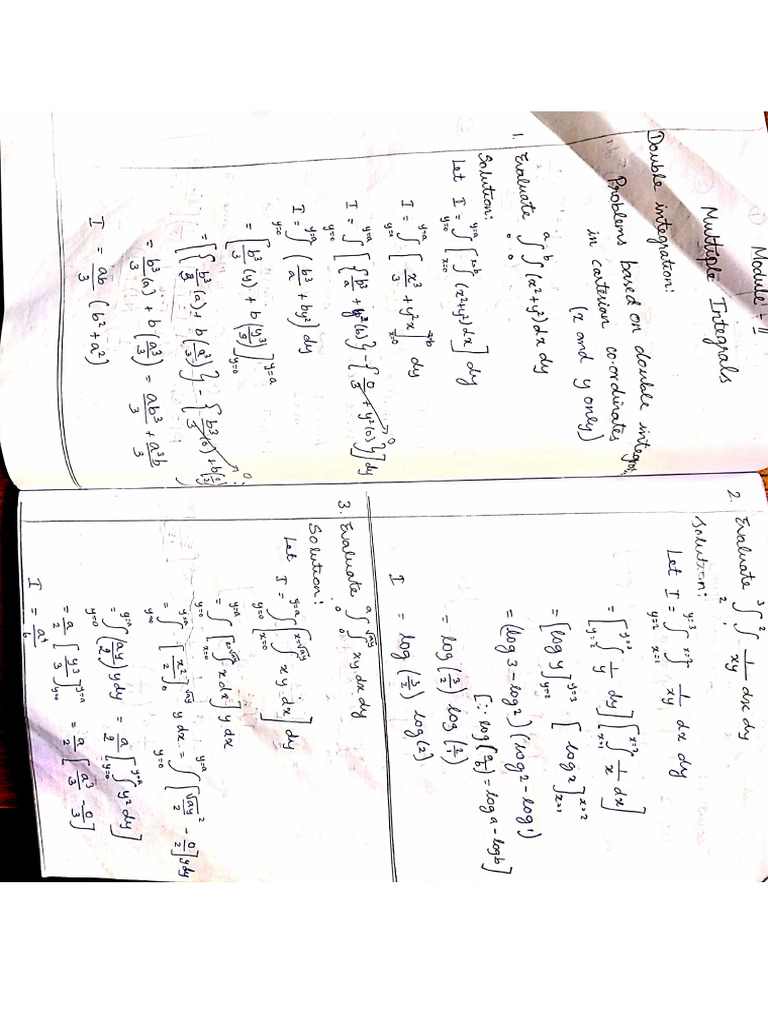 ① Module - II
Multiple Integrals
Double integration:
Problems based on double integral
in cartesion co-ordinates
(x and y only)
1. Evaluate ∫₀ᵃ ∫₀ᵇ (x²+y²) dx dy
Solution:
Let I = ∫_{y=0}^{y=a} [∫_{x=0}^{x=b} (x²+y²) dx] dy
I = ∫_{y=0}^{y=a} [x³/3 + y²x]_{x=0}^{x=b} dy
I = ∫_{y=0}^{y=a} [{b³/a + y²(b)} - {0/3 + y²(0)}] dy
I = ∫_{y=0}^{y=a} (b³/a + by²) dy
= [b³/3 (y) + b (y³/3)]_{y=0}^{y=a}
= [{b³/3 (a) + b (a³/3)} - {b³/3 (0) + b(0/3)}]
= b³/3 (a) + b (a³/3) = ab³/3 + a³b/3
I = ab/3 (b² + a²)
2. Evaluate ∫₂³ ∫₁² 1/xy dx dy
Solution:
Let I = ∫_{y=2}^{y=3} ∫_{x=1}^{x=2} 1/xy dx dy
= [∫_{y=2}^{y=3} 1/y dy] [∫_{x=1}^{x=2} 1/x dx]
= [log y]_{y=2}^{y=3} [log x]_{x=1}^{x=2}
= (log 3 - log 2) (log 2 - log 1)
[∵ log (a/b) = log a - log b]
= log (3/2) log (2/1)
I = log (3/2) log (2)
3. Evaluate ∫₀ᵃ ∫₀^{√ay} xy dx dy
Solution:
Let I = ∫_{y=0}^{y=a} [∫_{x=0}^{x=√ay} xy dx] dy
= ∫_{y=0}^{y=a} [∫_{x=0}^{x=√ay} x dx] y dx
= ∫_{y=0}^{y=a} [x²/2]_0^{√ay} y dx = ∫_{y=0}^{y=a} [√ay²/2 - 0/2] y dy
= ∫_{y=0}^{y=a} (ay/2) y dy = a/2 [∫_{y=0}^{y=a} y² dy]
= a/2 [y³/3]_{y=0}^{y=a} = a/2 [a³/3 - 0/3]
I = a⁴/6